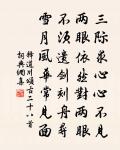 三际求心心不见
两眼依然对两眼
不须遗剑刻舟寻
雪月风花常见面
释道川颂古二十八首
词典网集